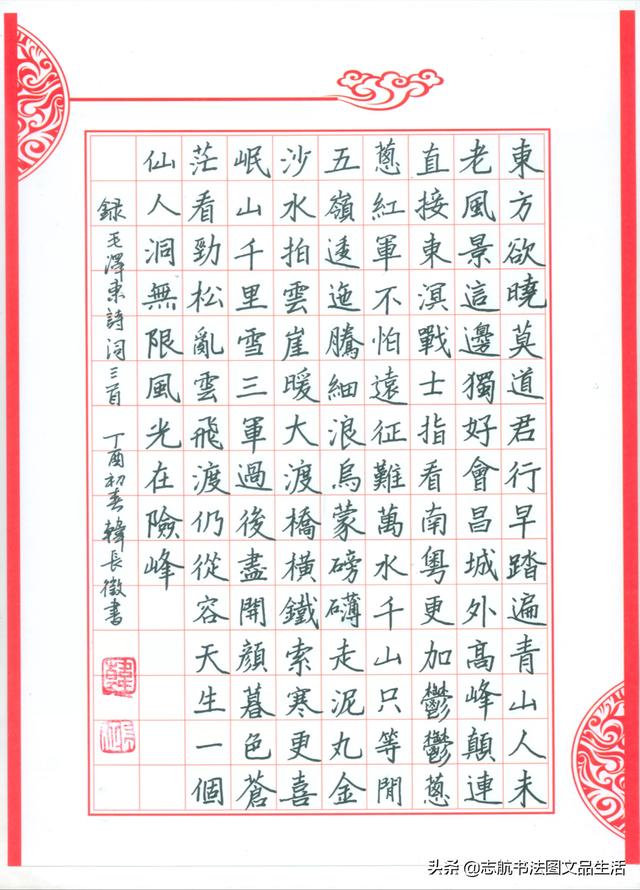 東方欲曉莫道君行早踏遍青山人未
老風景這邊獨好會昌城外高峰顛連
直接東溟戰士指看南粵更加鬱鬱蔥
蔥紅軍不怕遠征難萬水千山只等閒
五嶺逶迤騰細浪烏蒙磅礴走泥丸金
沙水拍雲崖暖大渡橋橫鐵索寒更喜
岷山千里雪三軍過後盡開顏暮色蒼
茫看勁松亂雲飛渡仍從容天生一個
仙人洞無限風光在險峰
録毛澤東詩詞三首 丁酉初春韓長徵書
头条 @志航书法图文品生活